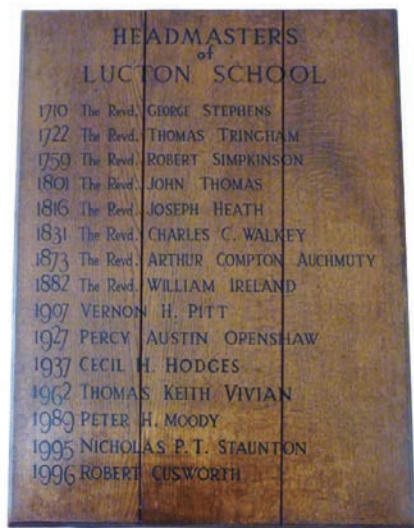 HEADMASTERS
of
LUCTON SCHOOL
1710 The Revd. GEORGE STEPHENS
1722 The Revd. THOMAS TRINGHAM
1759 The Revd. ROBERT SIMPKINSON
1801 The Revd. JOHN THOMAS
1816 The Revd. JOSEPH HEATH
1831 The Revd. CHARLES C. WALKEY
1873 The Revd. ARTHUR COMPTON AUCHMUTY
1882 The Revd. WILLIAM IRELAND
1907 VERNON H. PITT
1927 PERCY AUSTIN OPENSHAW
1937 CECIL H. HODGES
1962 THOMAS KEITH VIVIAN
1989 PETER H. MOODY
1995 NICHOLAS P.T. STAUNTON
1996 ROBERT CUSWORTH